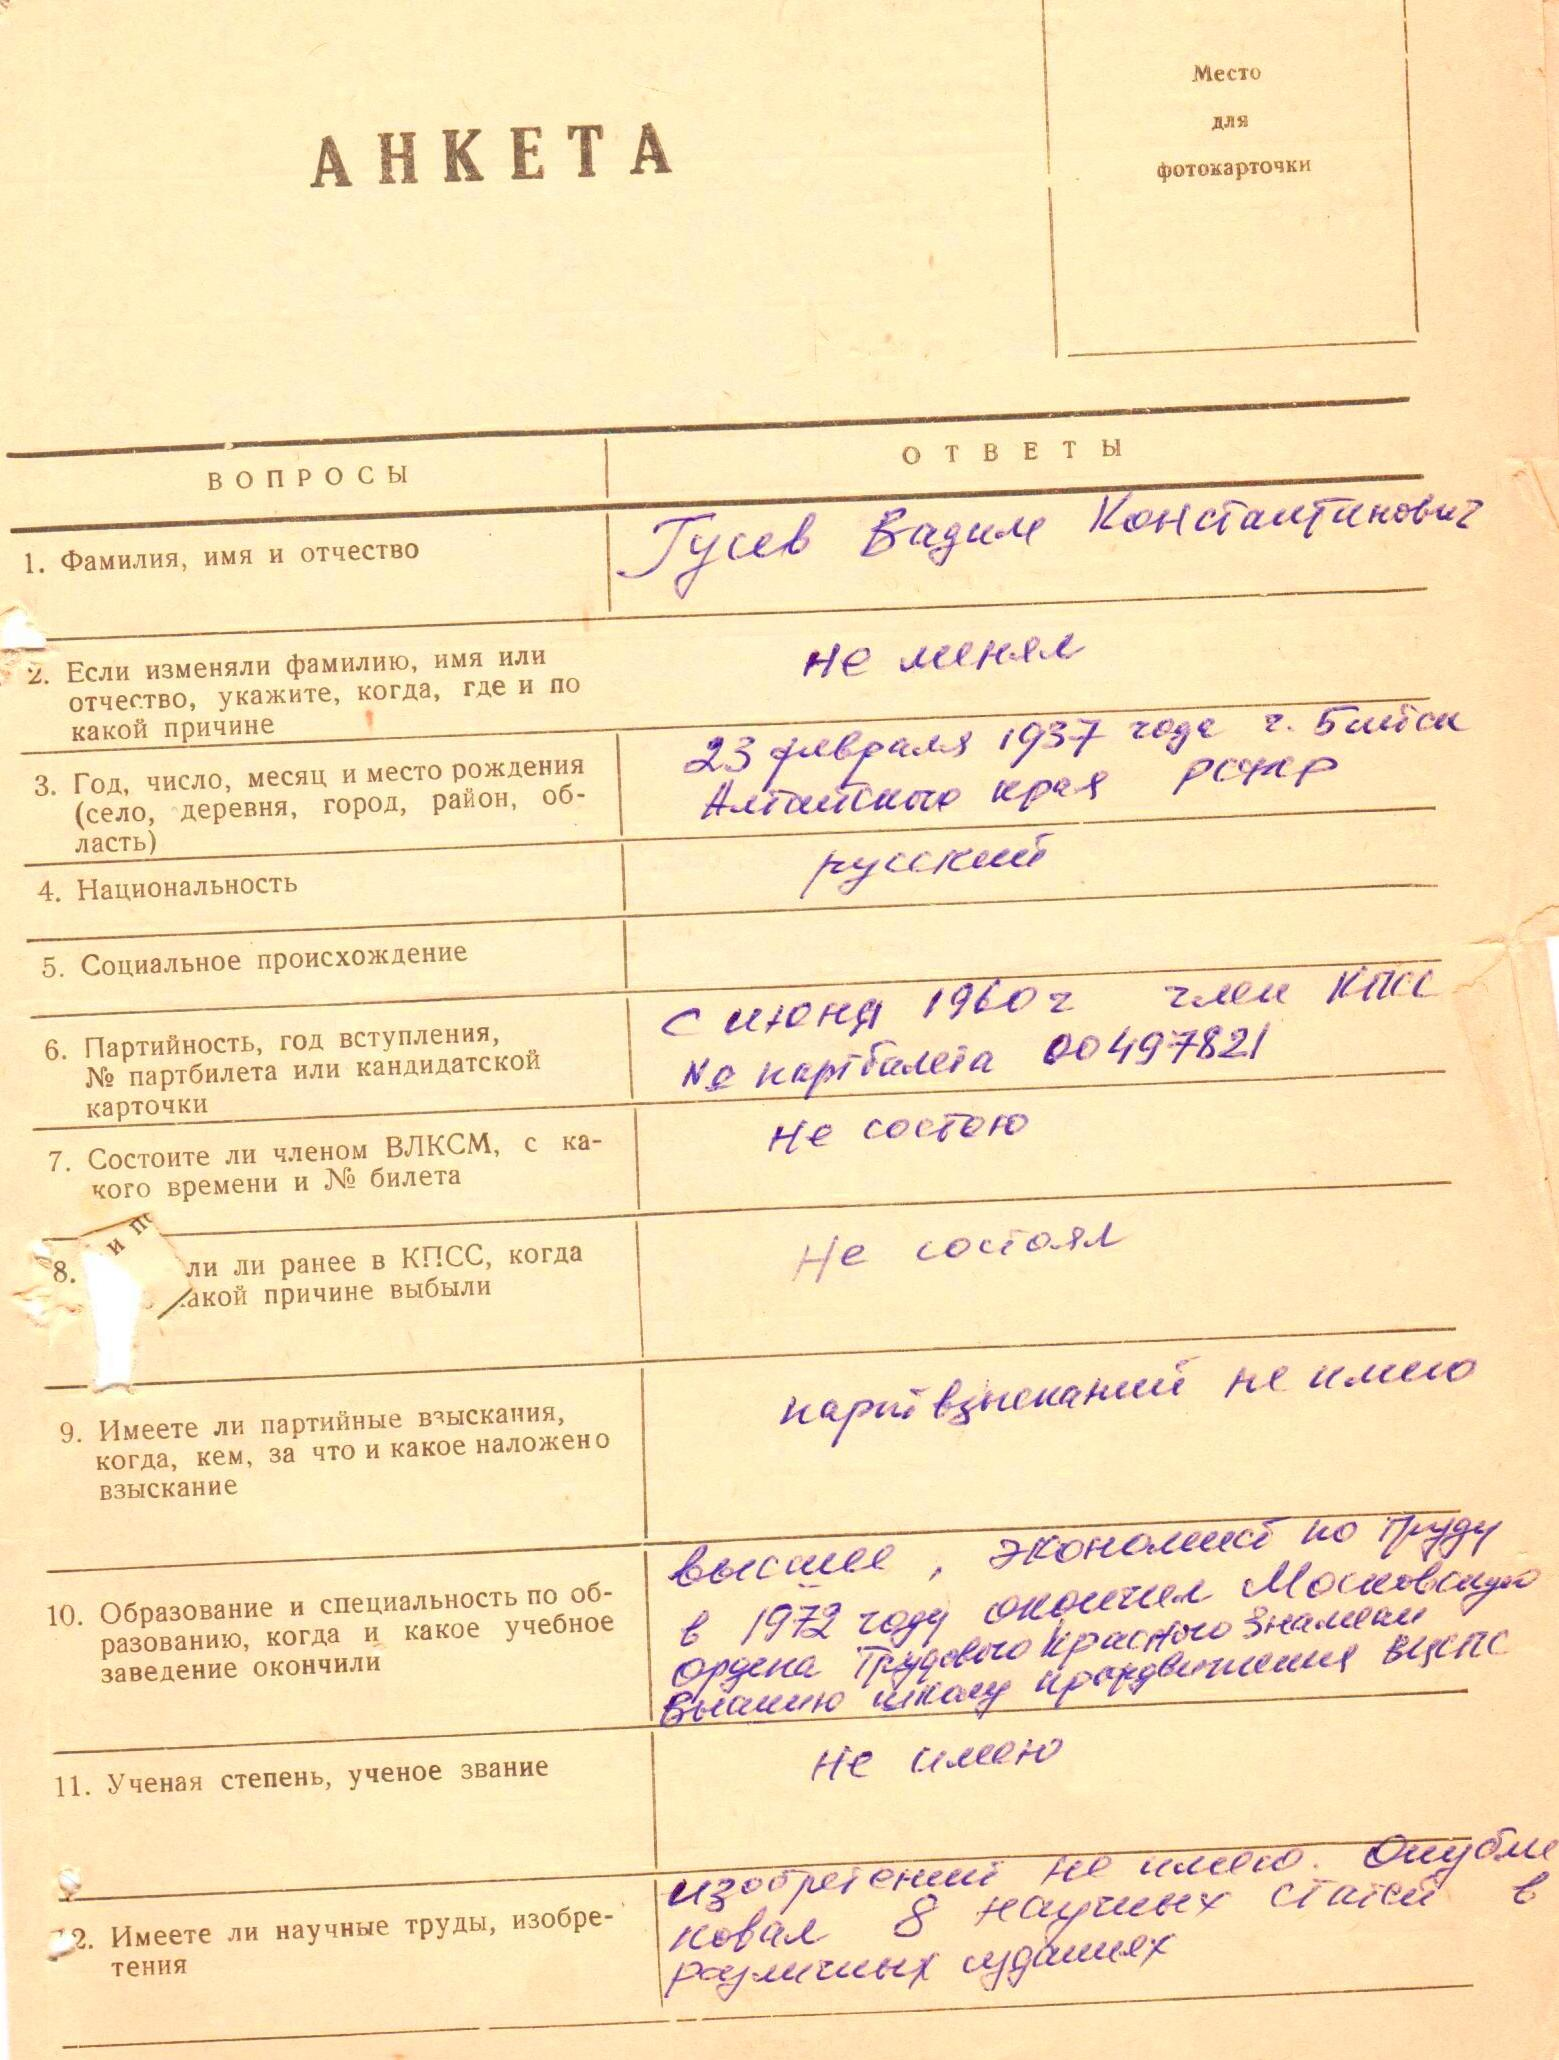 Место
для
фотокарточки
АНКЕТА
ВОПРОСЫ
ОТВЕТЫ
1. Фамилия, имя и отчество
Гусев Вадим Константинович
2. Если изменяли фамилию, имя или
отчество, укажите, когда, где и по
какой причине
не менял
3. Год, число, месяц и место рождения
(село, деревня, город, район, об-
ласть)
23 февраля 1937 года г. Бийск
Алтайского края РСФСР
4. Национальность
русский
5. Социальное происхождение
6. Партийность, год вступления,
№ партбилета или кандидатской
карточки
с июня 1960 г член КПСС
№ партбилета 00497821
7. Состоите ли членом ВЛКСМ, с ка-
кого времени и № билета
Не состою
8. ли ли ранее в КПСС, когда
и п
акой причине выбыли
Не состоял
9. Имеете ли партийные взыскания,
когда, кем, за что и какое наложено
взыскание
партвзысканий не имею
10. Образование и специальность по об-
разованию, когда и какое учебное
заведение окончили
высшее, экономист по труду
в 1972 году окончил Московскую
ордена Трудового Красного Знамени
Высшую школу профдвижения ВЦСПС
11. Ученая степень, ученое звание
Не имею
12. Имеете ли научные труды, изобре-
тения
изобретений не имею. Опубли
ковал 8 научных статей в
различных изданиях